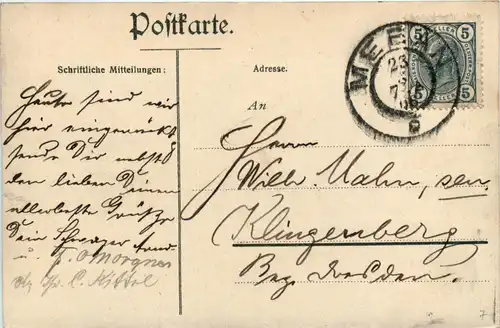 Postkarte.
Schriftliche Mitteilungen:
Adresse.
An
MEERAN
23
7-
5 5
5 5
HELLER
Heute sind wir
hier eingerückt
sende Dir nebst
den lieben Deinen
allerbeste Grüße
Dein Schwager
u. E. Morgner
C. Kittel
Herrn
Wilh. Mahn, sen
Klingenberg
Bez. Dresden.
7